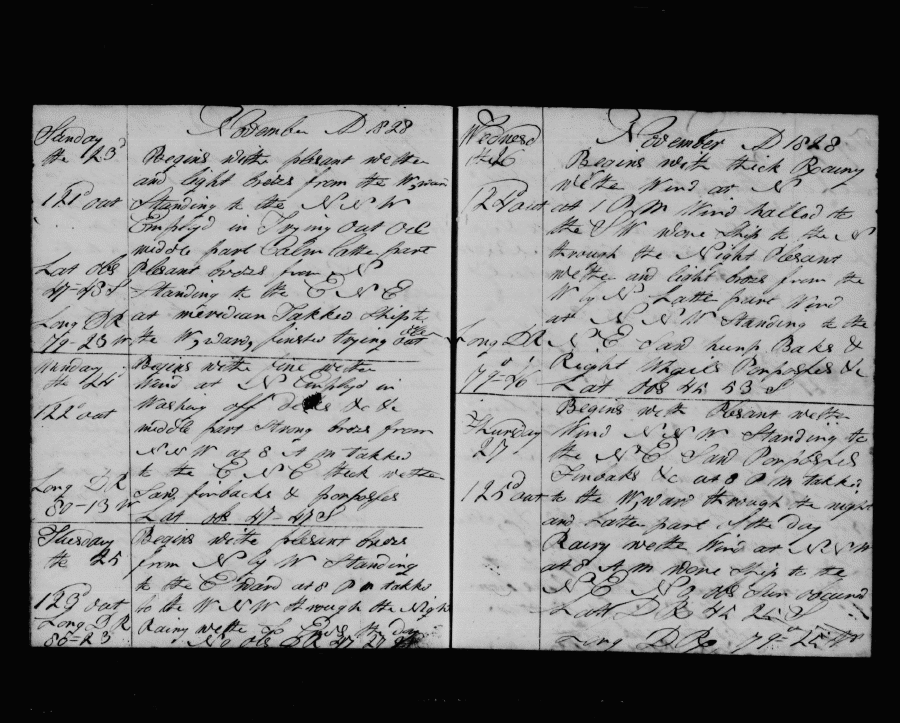 November AD 1828
Sunday
the 23d
121d out
Lat obs
47-43 S
Long DR
79-23 W
Begins withe plesant wethe
and light breses from the Wward
Standing to the NNW
Employd in Trying out Oil
middle part Calm latte part
Plesant breses from N
Standing to the ENE
at meredian Takked Ship to
the Wward, finished trying out
Munday
the 24
122d out
Long DR
80-13 W
Begins withe fine wethe
Wind at N Employd in
Washing off decks &c &c
middle part Strong breses from
NNW at 8 A m takked
to the ENE thick wethe
Saw finbacks & porposes
Lat obs 47-47 S
Tuesday
the 25
123d out
Long DR
80-23
Begins withe plesant breses
from N by W Standing
to the Eward at 8 P m takkd
to the WNW through the Night
Rainy wethe So Ends the day
No obs DR 47 27
November AD 1828
Wednesd
the 26
124d out
Long DR
79-26
Begins with thick Rainy
Wethe Wind at N
at 1 P M Wind halled to
the SW wore Ship to the N
through the Night Plesant
wethe and light breses from the
W by N Latte part Wind
at NNW Standing to the
NE Saw hump Baks &
Right Whails Porposses &c
Lat obs 45 53 S
Thursday
27
125d out
Begins with Plesant wethe
Wind NNW Standing to
the NE Saw Porposses
Finbaks &c at 8 P M takk
to the Wward through the night
and Latte part of the day
Rainy wethe Wind at NNW
at 8 A m wore Ship to the
NE No obs Sun obscurd
Latt DR 45 25 S
Long DR 79-25 W